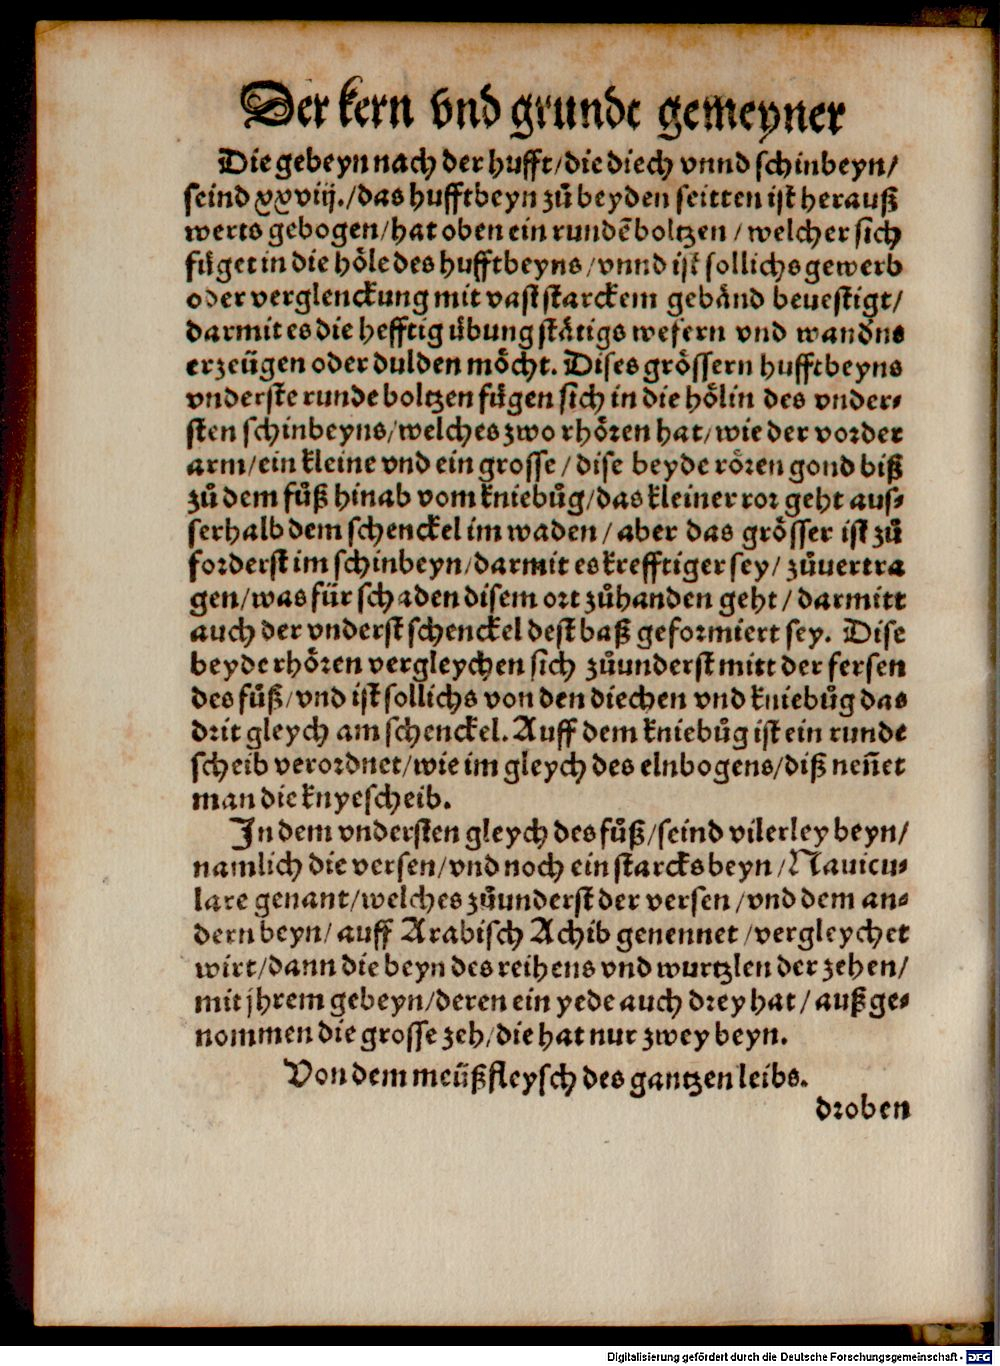 Der kern vnd grunde gemeyner
Die gebeyn nach der hufft/die diech vnnd schinbeyn/
seind xxviij./das hufftbeyn zů beyden seitten ist herauß
werts gebogen/hat oben ein rundē boltzen/welcher sich
fůget in die höle des hufftbeyns/vnnd ist sollichs gewerb
oder verglenckung mit vast starckem gebånd beuestigt/
darmit es die hefftig übung ståtigs wesern vnd wandlns
erzeügen oder dulden möcht. Dises grössern hufftbeyns
vnderste runde boltzen fůgen sich in die hölin des vnder⸗
sten schinbeyns/welches zwo rhören hat/wie der vorder
arm/ein kleine vnd ein grosse/dise beyde rören gond biß
zů dem fůß hinab vom kniebůg/das kleiner ror geht aus⸗
serhalb dem schenckel im waden/aber das grösser ist zů
forderst im schinbeyn/darmit es krefftiger sey/zůuertra
gen/was für schaden disem ort zůhanden geht/darmitt
auch der vnderst schenckel dest baß geformiert sey. Dise
beyde rhören vergleychen sich zůunderst mitt der fersen
des fůß/vnd ist sollichs von den diechen vnd kniebůg das
drit gleych am schenckel. Auff dem kniebůg ist ein runde
scheib verordnet/wie im gleych des elnbogens/diß neñet
man die knyescheib.
In dem vndersten gleych des fůß/seind vilerley beyn/
namlich die versen/vnd noch ein starcks beyn/Nauicu⸗
lare genant/welches zůunderst der versen/vnd dem an⸗
dern beyn/auff Arabisch Achib genennet/vergleychet
wirt/dann die beyn des reihens vnd wurtzlen der zehen/
mit jhrem gebeyn/deren ein yede auch drey hat/außge⸗
nommen die grosse zeh/die hat nur zwey beyn.
Von dem meüßfleysch des gantzen leibs.
droben
Digitalisierung gefördert durch die Deutsche Forschungsgemeinschaft - DFG